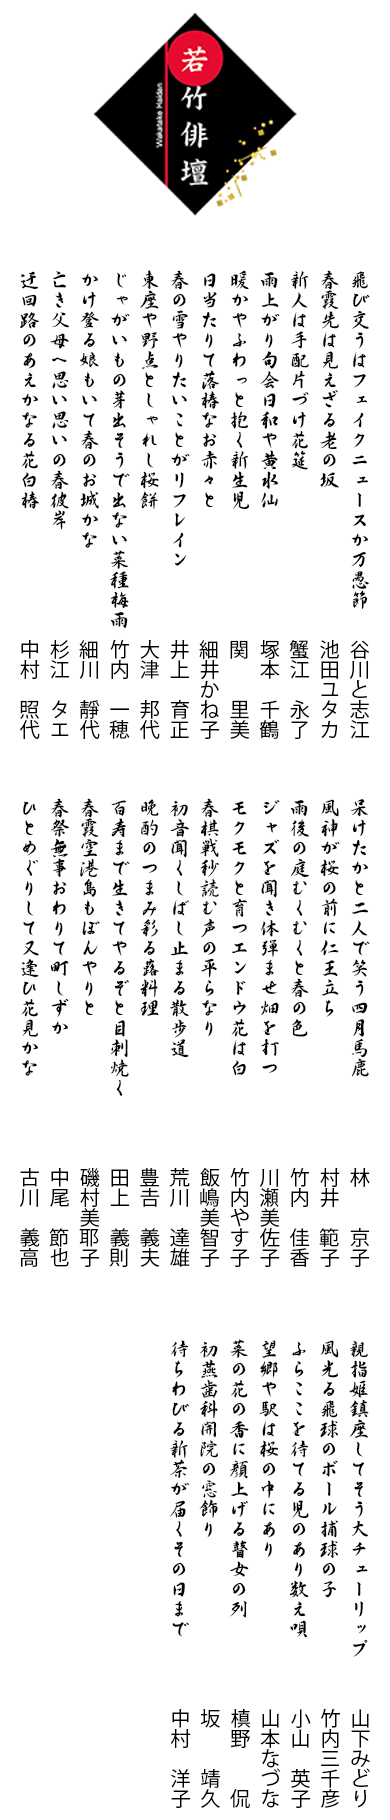 若竹俳壇
Wakatake Haidan
飛び交うはフェイクニュースか万愚節 谷川と志江
春霞先は見えざる老の坂 池田ユタカ
新人は手配片づけ花筵 蟹江 永了
雨上がり句会日和や黄水仙 塚本 千鶴
暖かやふわっと抱く新生児 関 里美
日当たりて落椿なお赤々と 細井かね子
春の雪やりたいことがリフレイン 井上 育正
東座や野点としゃれし桜餅 大津 邦代
じゃがいもの芽出そうで出ない菜種梅雨 竹内 一穂
かけ登る娘もいて春のお城かな 細川 靜代
亡き父母へ思い思いの春彼岸 杉江 タエ
迂回路のあえかなる花白椿 中村 照代
呆けたかと二人で笑う四月馬鹿 林 京子
風神が桜の前に仁王立ち 村井 範子
雨後の庭むくむくと春の色 竹内 佳香
ジャズを聞き体弾ませ畑を打つ 川瀬美佐子
モクモクと育つエンドウ花は白 竹内やす子
春棋戦秒読む声の平らなり 飯嶋美智子
初音聞くしばし止まる散歩道 荒川 達雄
晩酌のつまみ彩る蕗料理 豊𠮷 義夫
百寿まで生きてやるぞと目刺焼く 田上 義則
春霞空港島もぼんやりと 磯村美耶子
春祭無事おわりて町しずか 中尾 節也
ひとめぐりして又逢ひ花見かな 古川 義高
親指姫鎮座してそう大チューリップ 山下みどり
風光る飛球のボール捕球の子 竹内三千彦
ふらここを待てる児のあり数え唄 小山 英子
望郷や駅は桜の中にあり 山本なづな
菜の花の香に顔上げる瞽女の列 槙野 侃
初燕歯科開院の窓飾り 坂 靖久
待ちわびる新茶が届くその日まで 中村 洋子